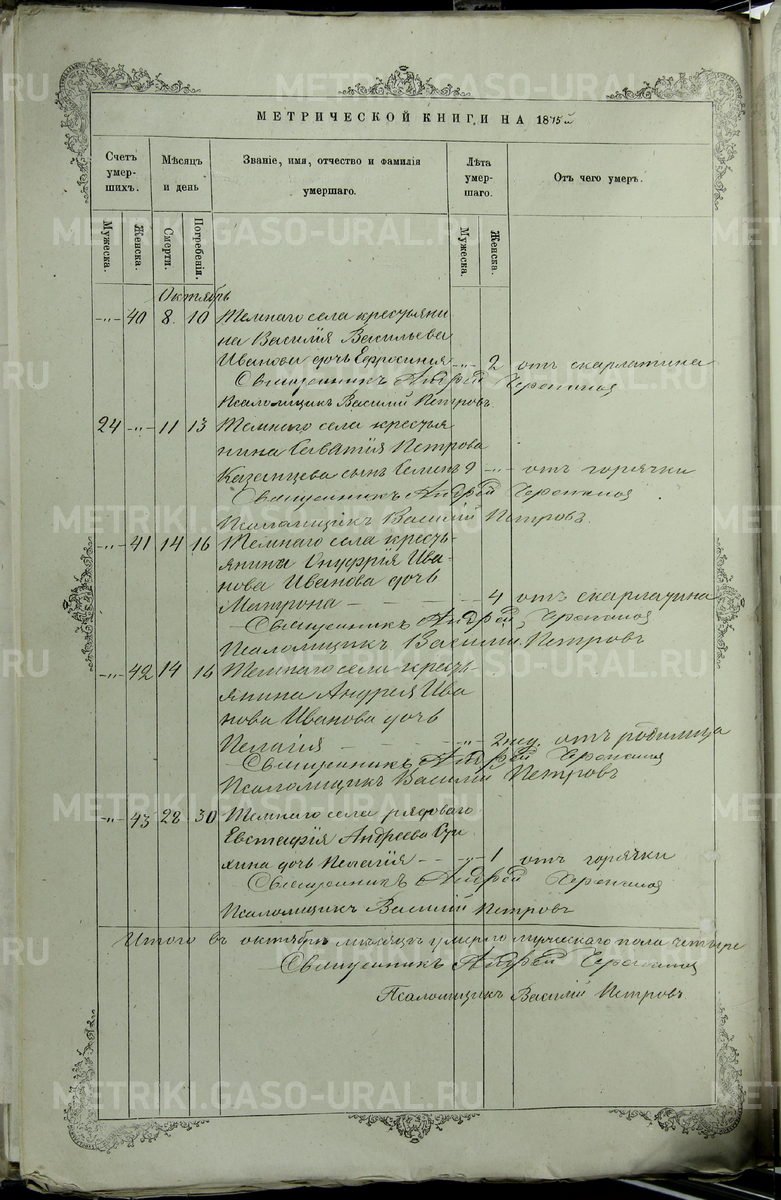 МЕТРИЧЕСКОЙ КНИГИ НА 1875й
Счетъ умер-шихъ.
Мѣсяцъ и день
Званіе, имя, отчество и фамилія умершаго.
Лѣта умер-шаго.
Отъ чего умеръ.
Мужеска.
Женска.
Смерти.
Погребенія.
Мужеска.
Женска.
Октябрь
-„- 40 8. 10 Темнаго села крестьяни
на Василія Васильева
Иванова дочь Ефросинія -„- 2 отъ скарлатина
Священникъ Андрей
Псаломщикъ Василій Петровъ.
24 -„- 11 13 Темнаго села крестья
нина Савватія Петрова
Казанцева сынъ Семенъ 9 -„- отъ горячки
Священникъ Андрей
Псаломщикъ Василій Петровъ.
-„- 41 14 16 Темнаго села кресть-
янина Онуфрія Ива-
нова Иванова дочь
Матрона - - - 4 отъ скарлатина
Священникъ Андрей
Псаломщикъ Василій Петровъ
-„- 42 14 16 Темнаго села кресть
янина Андрея Ива
нова Иванова дочь
Пелагія - - -„- 2 нед. отъ родимца
Священникъ Андрей
Псаломщикъ Василій Петровъ
-„- 43 28 30 Темнаго села рядоваго
Евстафія Андреева
дочь Пелагія - - -„- 1 отъ горячки
Священникъ Андрей
Псаломщикъ Василій Петровъ
Итого въ октябрѣ мѣсяцѣ умерло мужескаго пола четыре
Священникъ Андрей
Псаломщикъ Василій Петровъ.
METRIKI.GASO-URAL.RU